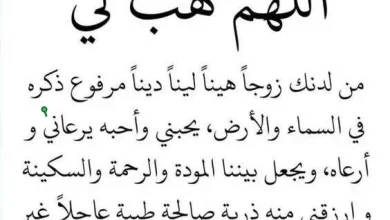 اللهم هب لي
من لدنك زوجاً هيناً ليناً ديناً مرفوع ذكره
في السماء والأرض، يحبني وأحبه يرعاني و
أرعاه، ويجعل بيننا المودة والرحمة والسكينة
وارزقني منه ذرية صالحة طيبة عاجلاً غير